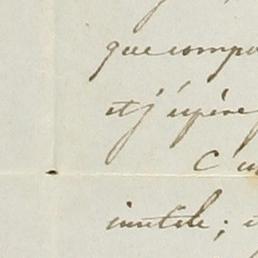 que compo
et j'espère
C'e
inutile ;